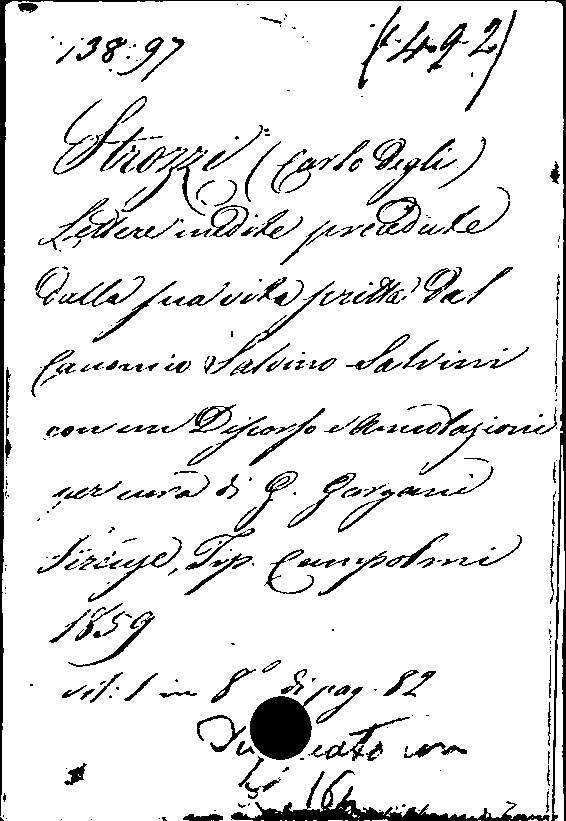 138:97 (492)
Strozzi (Carlo Degli)
Lettere inedite precedute
dalla sua vita scritta dal
Canonico Salvino Salvini
con un Discorso e Annotazioni
per cura di G. Gargani
Firenze, Tip. Campolmi
1859
vol: 1 in 8º di pag. 82